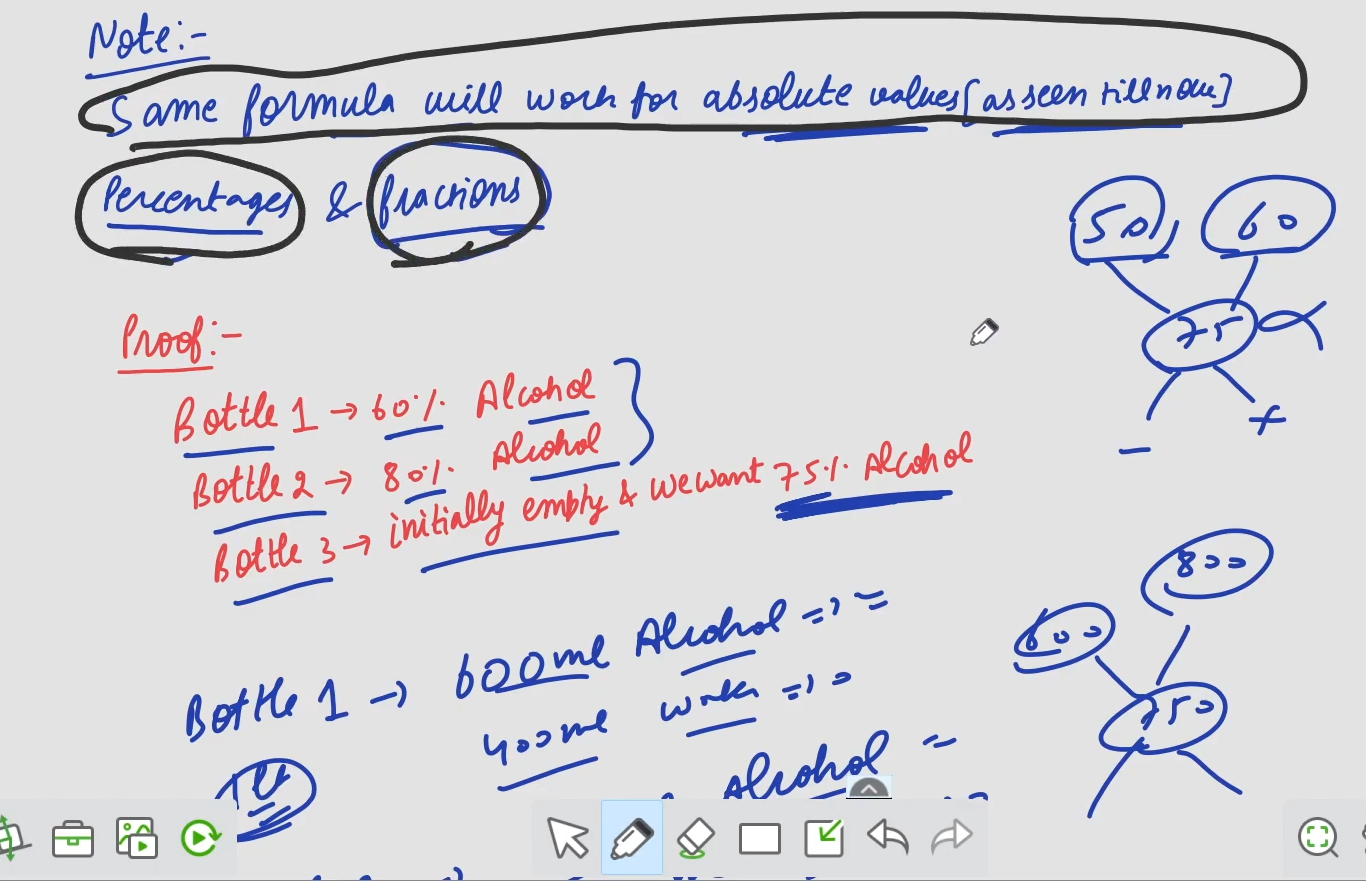 Note:-
Same formula will work for absolute values [as seen till now]
Percentages & fractions
50% 60
75
- +
Proof:-
Bottle 1 → 60% Alcohol
Bottle 2 → 80% Alcohol
Bottle 3 → initially empty & we want 75% Alcohol
800
600
750
Bottle 1 → 600ml Alcohol =>
400ml water =>
Alcohol